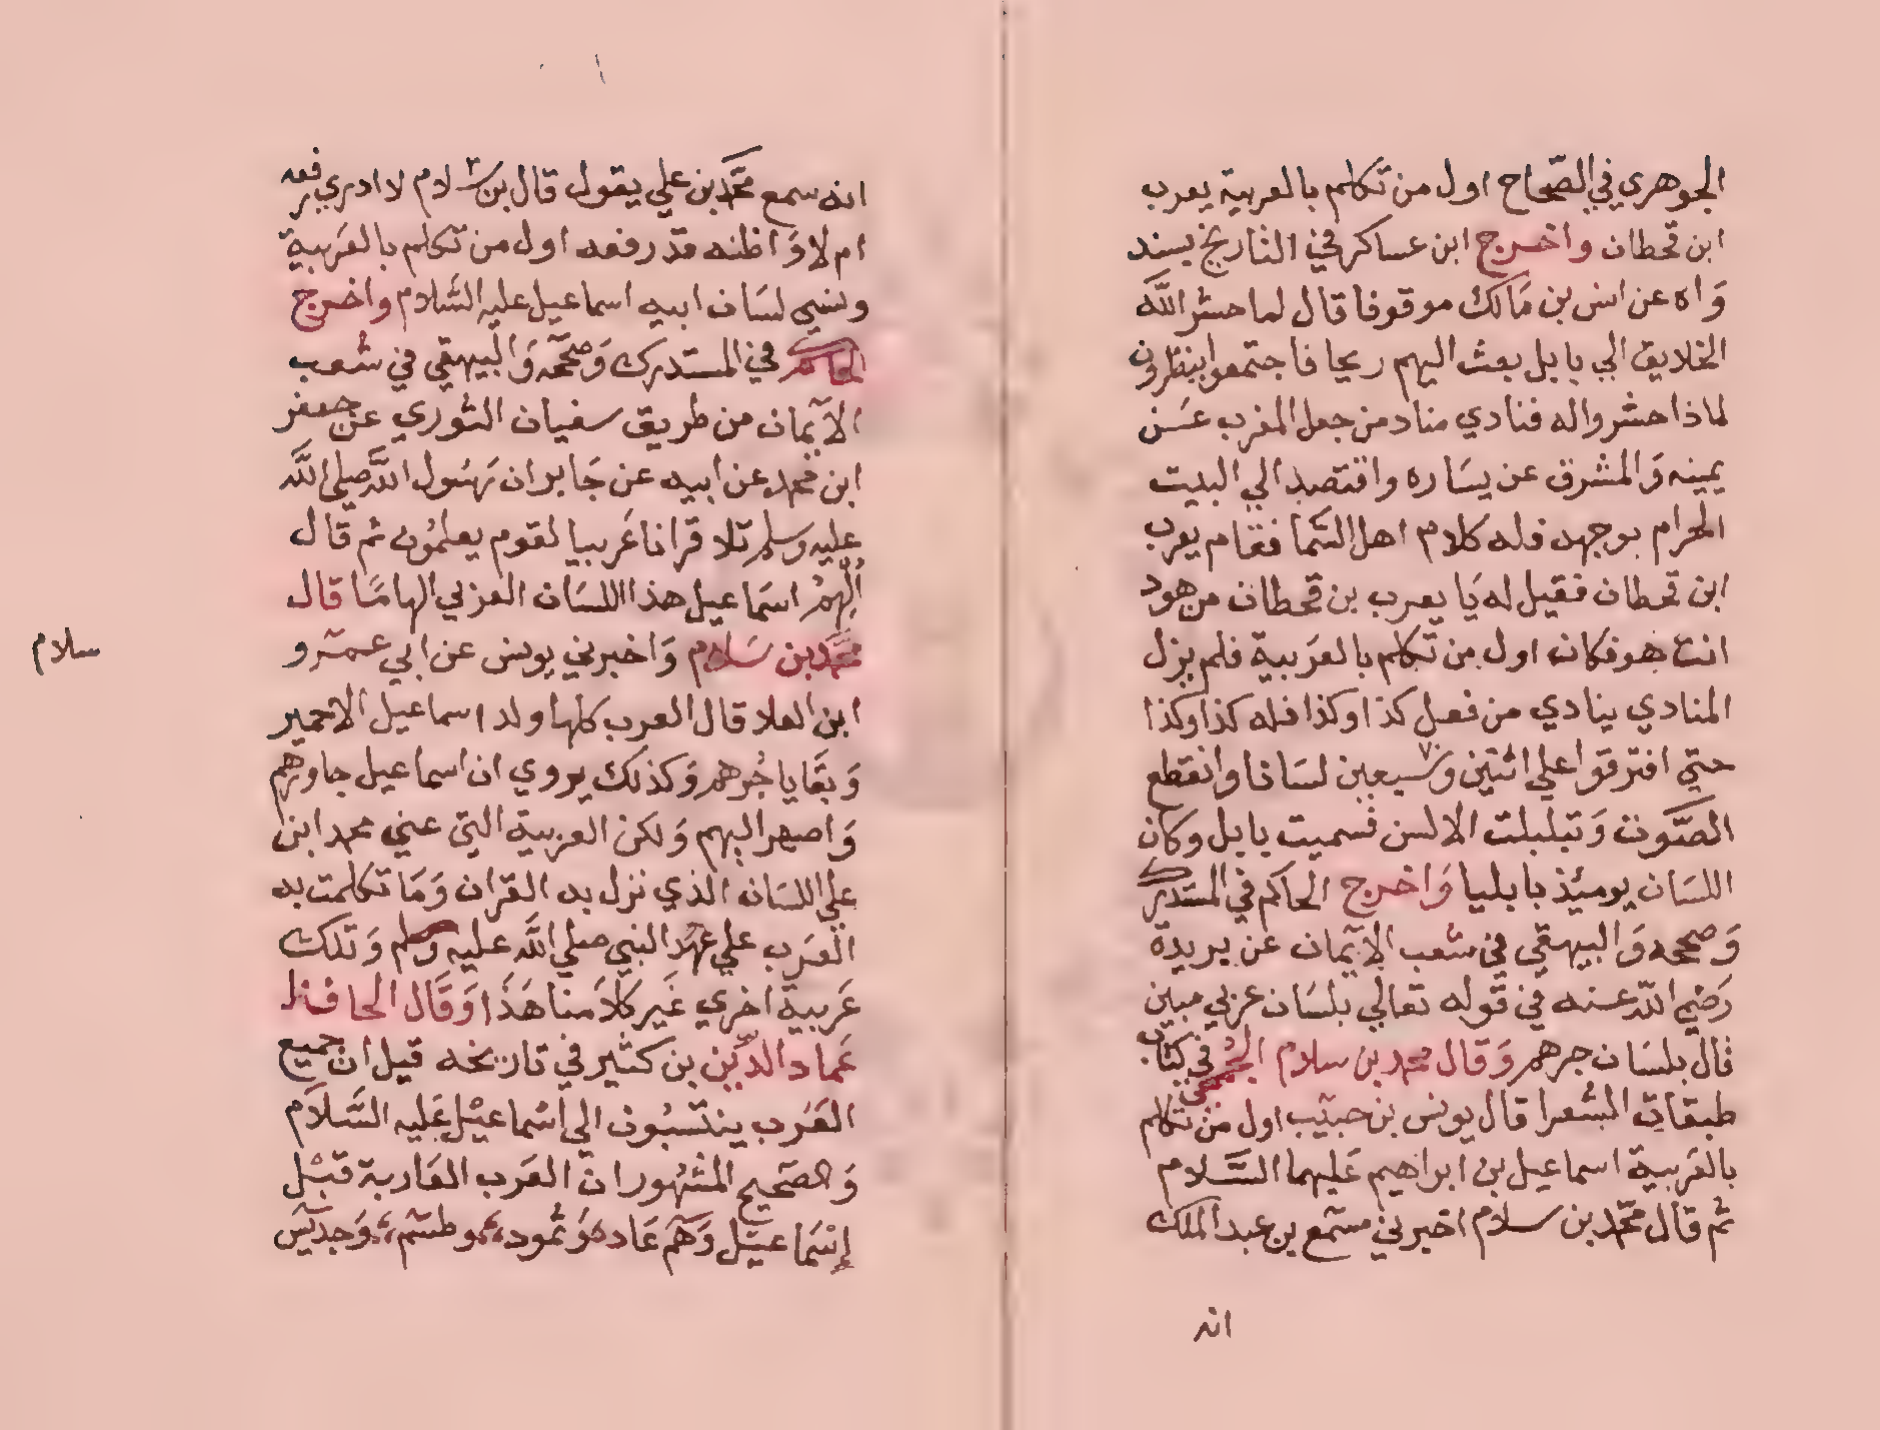 الجوهري في الصحاح اول من تكلم بالعربية يعرب
ابن قحطان واخرج ابن عساكر في التاريخ بسند
وَاه عن انس بن مَالك موقوفا قال لما حشر اللَّه
الخلايق الي بابل بعث اليهم ريحا فاجتمعوا ينظرون
لماذا حشروا له فنادي مناد من جعل المغرب عَن
يمينه وَالمشرق عن يسَاره واقتصد الي البيت
الحرام بوجهه فله كلام اهل السَّما فقام يعرب
ابن قحطان فقيل له يَا يعرب بن قحطان من هود
انت هو فكان اول من تكلم بالعَربية فلم يزل
المنادي ينادي من فعل كذا وكذا فله كذا وكذا
حتي افترقوا علي اثنين وسبعين لسَانا وانقطع
الصَّوت وَتبلبلت الالسن فسميت بابل وكان
اللسَان يومئذ بابليا وَاخرج الحاكم في المستدرك
وَصححه وَالبيهقي في شعب الايمان عن بريدة
رَضي اللَّه عنه في قوله تعالي بلسَان عربي مبين
قال بلسَان جرهم وَقال محمد بن سلام الجُمحي في كتاب
طبقات الشعرا قال يونس بن حبيب اول من تكلم
بالعَربية اسماعيل بن ابراهيم عَليهما السَّلام
ثم قال محمَّد بن سلام اخبرني مسمع بن عبد الملك
انه
انه سمع محمَّد بن علي يقول قال بن سلام لا ادري رفعه
ام لا وَاظنه قد رفعه اول من تكلم بالعَربية
ونسي لسَان ابيه اسماعيل عليه السَّلام واخرج
الحاكم في المستدرك وَصححه وَالبيهقي في شعب
الايمان من طريق سفيان الثوري عن جعفر
ابن محمد عن ابيه عن جَابر ان رَسُول اللَّه صلي اللَّه
عليه وسلم تلا قرانا عَربيا لقوم يعلمُون ثم قال
اُلهمُ اسَماعيل هذا اللسَان العربي الهامًا قال
محمَّد بن سَلام وَاخبرني يونس عن ابي عمرو
ابن العلا قال العرب كلها ولد اسماعيل الا حمير
وَبقَايا جُرهم وَكذلك يروي ان اسماعيل جاورهم
وَاصهر اليهم وَلكن العربية التي عني محمد ابن
علي اللسَان الذي نزل به القران وَمَا تكلمت به
العَرَب علي عهد النبي صلي اللَّه عليه وسلم وَتلك
عَربية اخري غَير كلاَمنا هَذَا وَقَال الحافظ
عَماد الدّين بن كثير في تاريخه قيل ان جميع
العَرَب ينتسبُون الي اسْماعيْل عَليه السَّلاَم
وَالصَحيح المشهُور ان العَرب العَاربة قبْل
إسَماعيْل وَهم عَاد وَثمود وطسم وَجديس
سلام